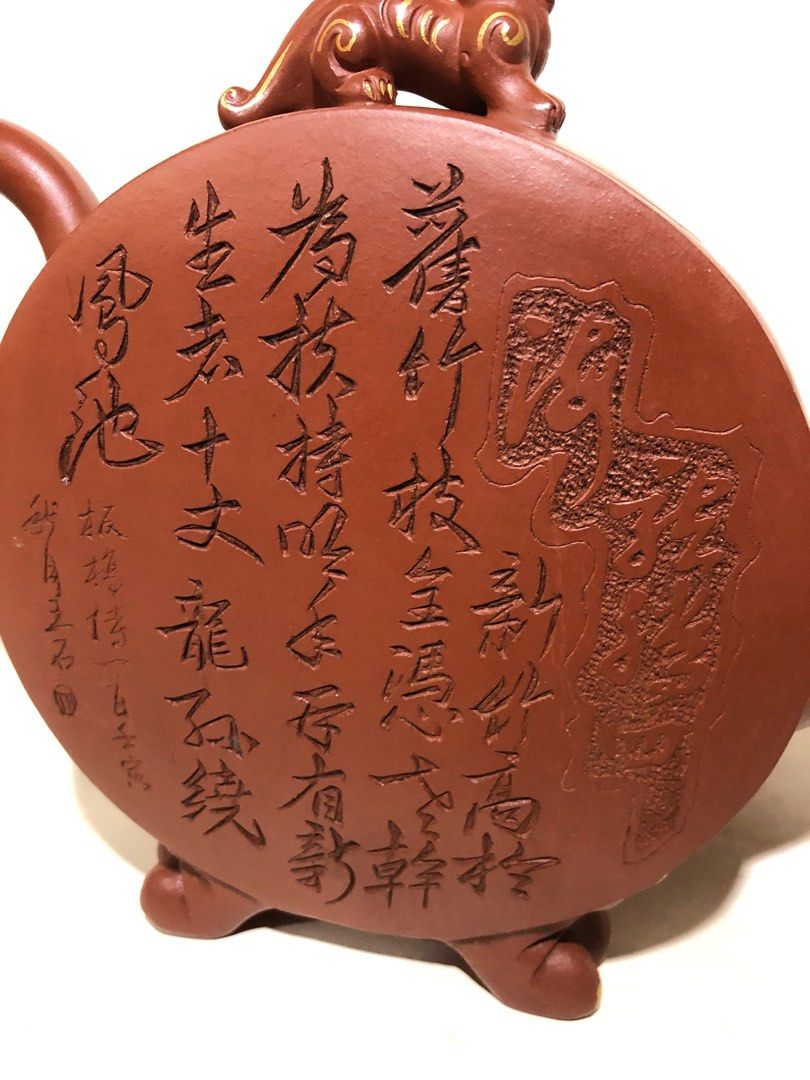 新竹高於
舊竹枝全憑老幹
為扶持明年再有新
生者十丈龍孫繞
鳳池
板橋詩一首壬寅
秋月